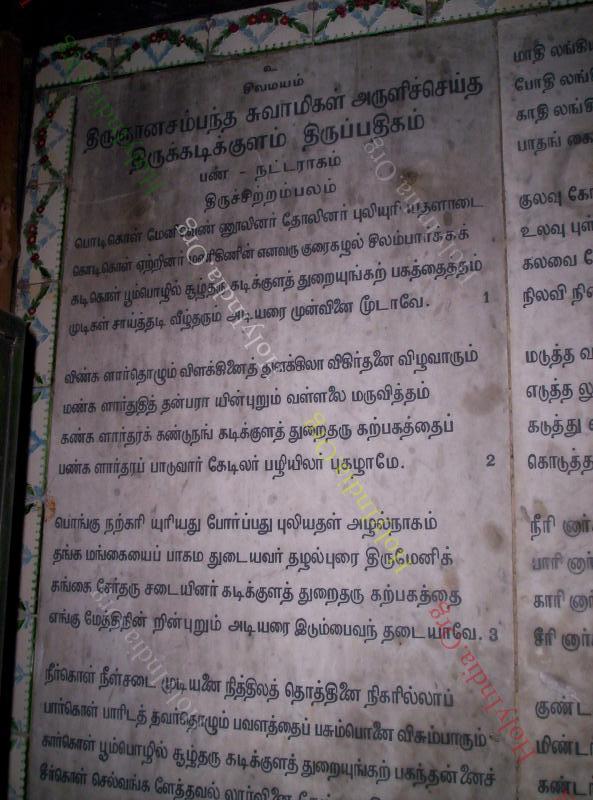 உ
சிவமயம்
திருஞானசம்பந்த சுவாமிகள் அருளிச்செய்த
திருக்கடிக்குளம் திருப்பதிகம்
பண் - நட்டராகம்
திருச்சிற்றம்பலம்
பொடிகொள் மேனிவெண் ணூலினர் தோலினர் புலியுரி யதளாடை
கொடிகொள் ஏற்றினர் மணிகிணின் எனவரு குரைகழல் சிலம்பார்க்கக்
கடிகொள் பூம்பொழில் சூழ்தரு கடிக்குளத் துறையுங்கற் பகத்தைத்தம்
முடிகள் சாய்த்தடி வீழ்தரும் அடியரை முன்வினை மூடாவே. 1
விண்க ளார்தொழும் விளக்கினைத் துளக்கிலா விகிர்தனை விழவாரும்
மண்க ளார்துதித் தன்பரா யின்புறும் வள்ளலை மருவித்தம்
கண்க ளார்தரக் கண்டுநங் கடிக்குளத் துறைதரு கற்பகத்தைப்
பண்க ளார்தரப் பாடுவார் கேடிலர் பழியிலர் புகழாமே. 2
பொங்கு நற்கரி யுரியது போர்ப்பது புலியதள் அழல்நாகம்
தங்க மங்கையைப் பாகம துடையவர் தழல்புரை திருமேனிக்
கங்கை சேர்தரு சடையினர் கடிக்குளத் துறைதரு கற்பகத்தை
எங்கு மேத்திநின் றின்புறும் அடியரை இடும்பைவந் தடையாவே. 3
நீர்கொள் நீள்சடை முடியனை நித்திலத் தொத்தினை நிகரில்லாப்
பார்கொள் பாரிடத் தவர்தொழும் பவளத்தைப் பசும்பொனை விசும்பாரும்
கார்கொள் பூம்பொழில் சூழ்தரு கடிக்குளத் துறையுங்கற் பகந்தன்னைச்
சீர்கொள் செல்வங்க ளேத்தவல் லார்வினை
மாதி லங்கிய
போதி லங்கி
காதி லங்கி
பாதங் கை
குலவு கோ
உலவு புள்
கலவை சே
நிலவி நின்
மடுத்த வ
எடுத்த லு
கடுத்து
கொடுத்த
நீரி னார்
பாரி னார்
காரி னார்
சீரி னார்
குண்ட
மிண்டர்
கண்டர்
HolyIndia.Org
HolyIndia.Org
HolyIndia.Org
HolyIndia.Org
HolyIndia.Org
HolyIndia.Org